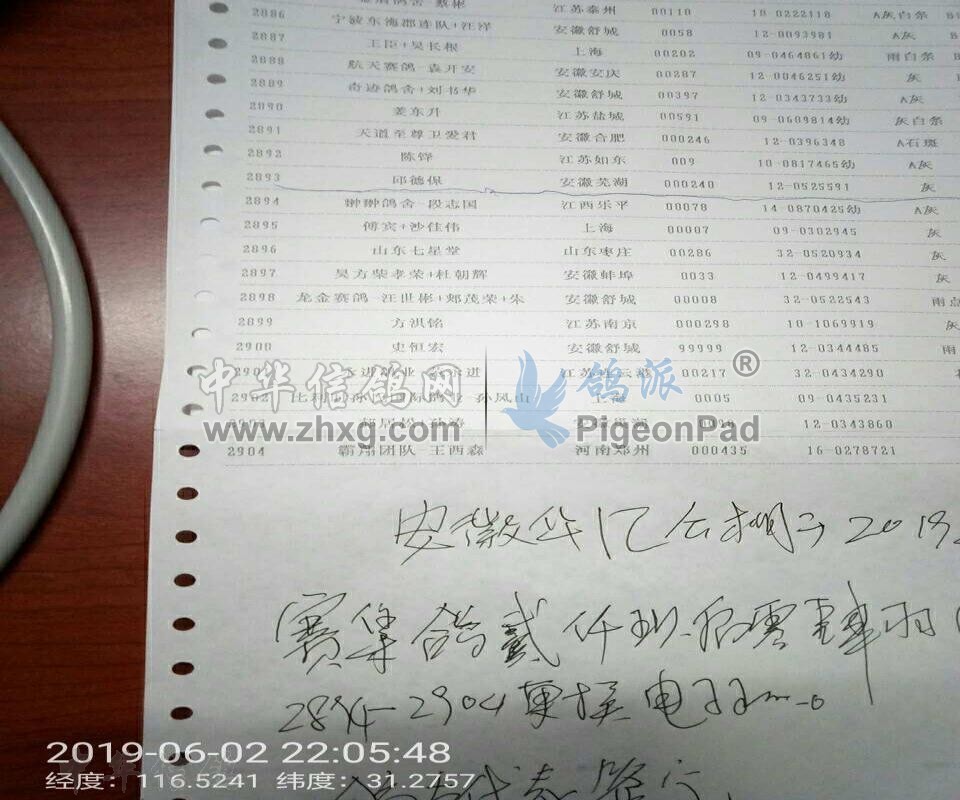 2886 江苏泰州 00110 10-0222118 A灰白条
宁波东海郡连队+汪洋 安徽舒城 0058 12-0093981 A灰
2887 王臣+吴长根 上海 00202 09-0464861幼 雨白条
2888 航天赛鸽-袁开安 安徽安庆 00287 12-0046251幼 灰
2889 奇迹鸽舍+刘书华 安徽舒城 00397 12-0343733幼 A灰
2890 姜东升 江苏盐城 00591 09-0609814幼 灰白条
2891 天道至尊卫爱君 安徽合肥 000246 12-0396348 A石斑
2892 陈铧 江苏如东 009 10-0817465幼 A灰
2893 邱德保 安徽芜湖 000240 12-0525591 灰
2894 翀翀鸽舍-段志国 江西乐平 00078 14-0870425幼 A灰
2895 傅宾+沙佳伟 上海 00007 09-0302945 灰
2896 山东七星堂 山东枣庄 00286 32-0520934 灰
2897 吴方柴孝荣+杜朝辉 安徽蚌埠 0033 12-0499417 灰
2898 龙金赛鸽-汪世彬+郏茂荣+朱 安徽舒城 00008 32-0522543 雨点
2899 方洪铭 江苏南京 000298 10-1069919 灰
2900 史恒宏 安徽舒城 99999 12-0344485 雨
江苏连云港 00217 32-0434290
2902 孙凤山 上海 0005 09-0435231
12-0343860
2904 霸翔团队-王西森 河南郑州 000435 16-0278721
中华信鸽网 鸽派®
www.zhxg.com PigeonPad
安徽华亿公棚于2019
赛集鸽贰仟捌佰零肆羽
2894-2904
2019-06-02 22:05:48
经度：116.5241 纬度：31.2757